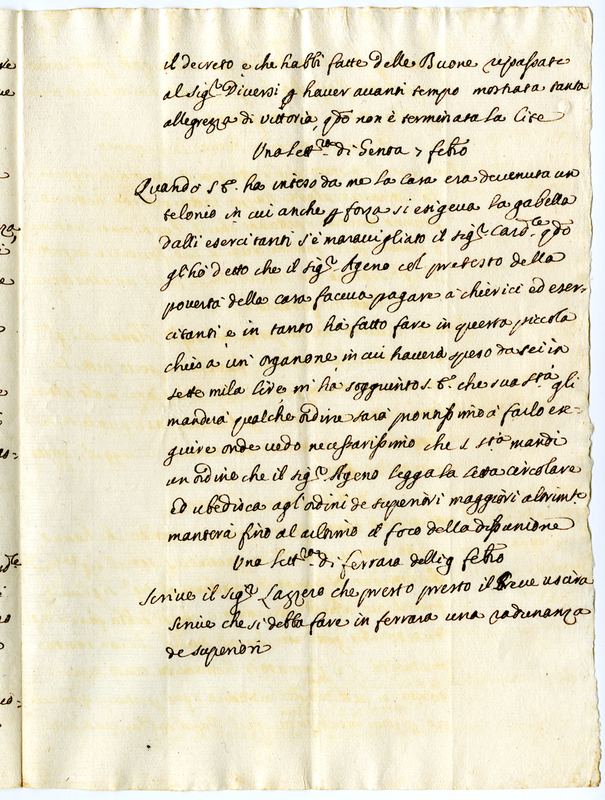 il decreto e che habbi fatte delle Buone repassate
al Sig.r Diversi p haver avanti tempo mostrata tanta
allegrezza di vittoria, qdo non è terminata la Lite
Una Lett.ra di Genva 7 febro
Quando S E. ha inteso da me la casa era devenuta un
telonio in cui anche p forza si esigeva la gabella
dalli esercitanti s'è maravigliato il Sig.r Card.le qdo
gl'hò detto che il Sig.r Ageno col pretesto della
povertà della casa faceva pagare a chierici ed eser-
citanti e in tanto hà fatto fare in questa piccola
chiesa un' organone in cui haverà speso da sei in
sette mila lire m'hà soggiunto S. E. che sua S.tà gli
manderà qualche ordine sarà prontissimo a farlo ese-
guire onde vedo necessarissimo che S S.tà mandi
un ordine che il Sig.r Ageno legga la lettra circolare
ed ubedisca agl'ordini de superiori maggiori altrimte
manterà fino al ultimo il foco della dissanione
Una Lett.ra di ferrara delli 9 febro
Scrive il Sig.r Lazzero che presto presto il Breve uscirà
Scrive che si debba fare in ferrara una radunanza
de superiori